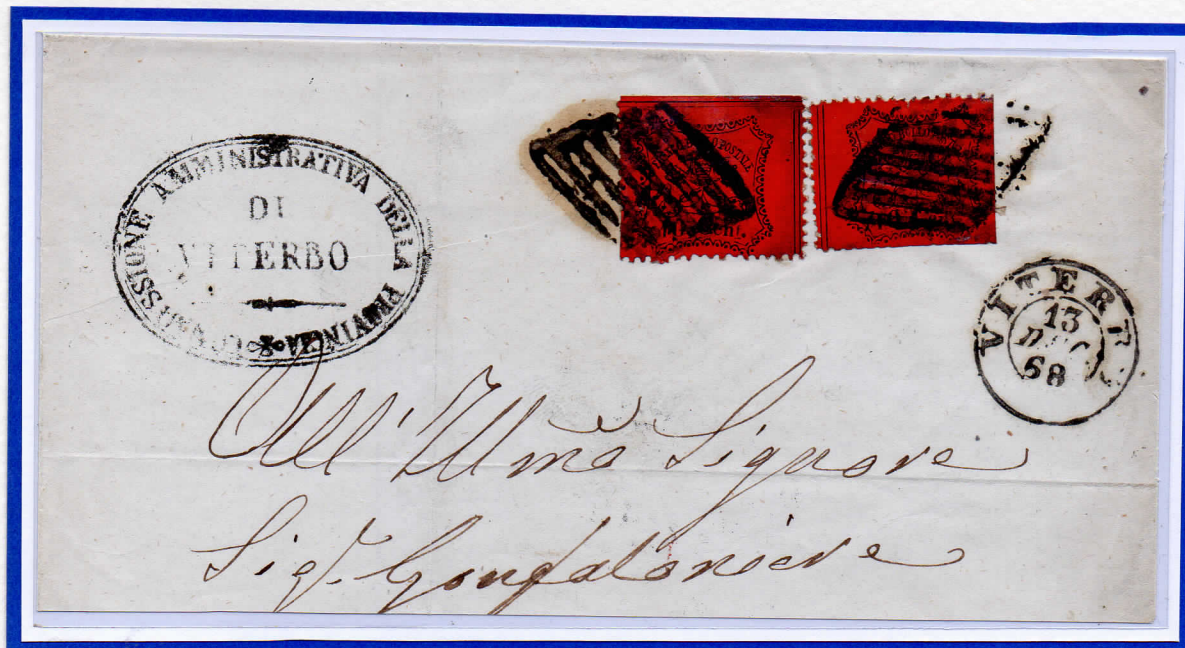 COMMISSIONE AMMINISTRATIVA DELLA PROVINCIA
DI
VITERBO
VITERBO
13
DEC
68
All'Illmo Signore
Sigr. Gonfaloniere